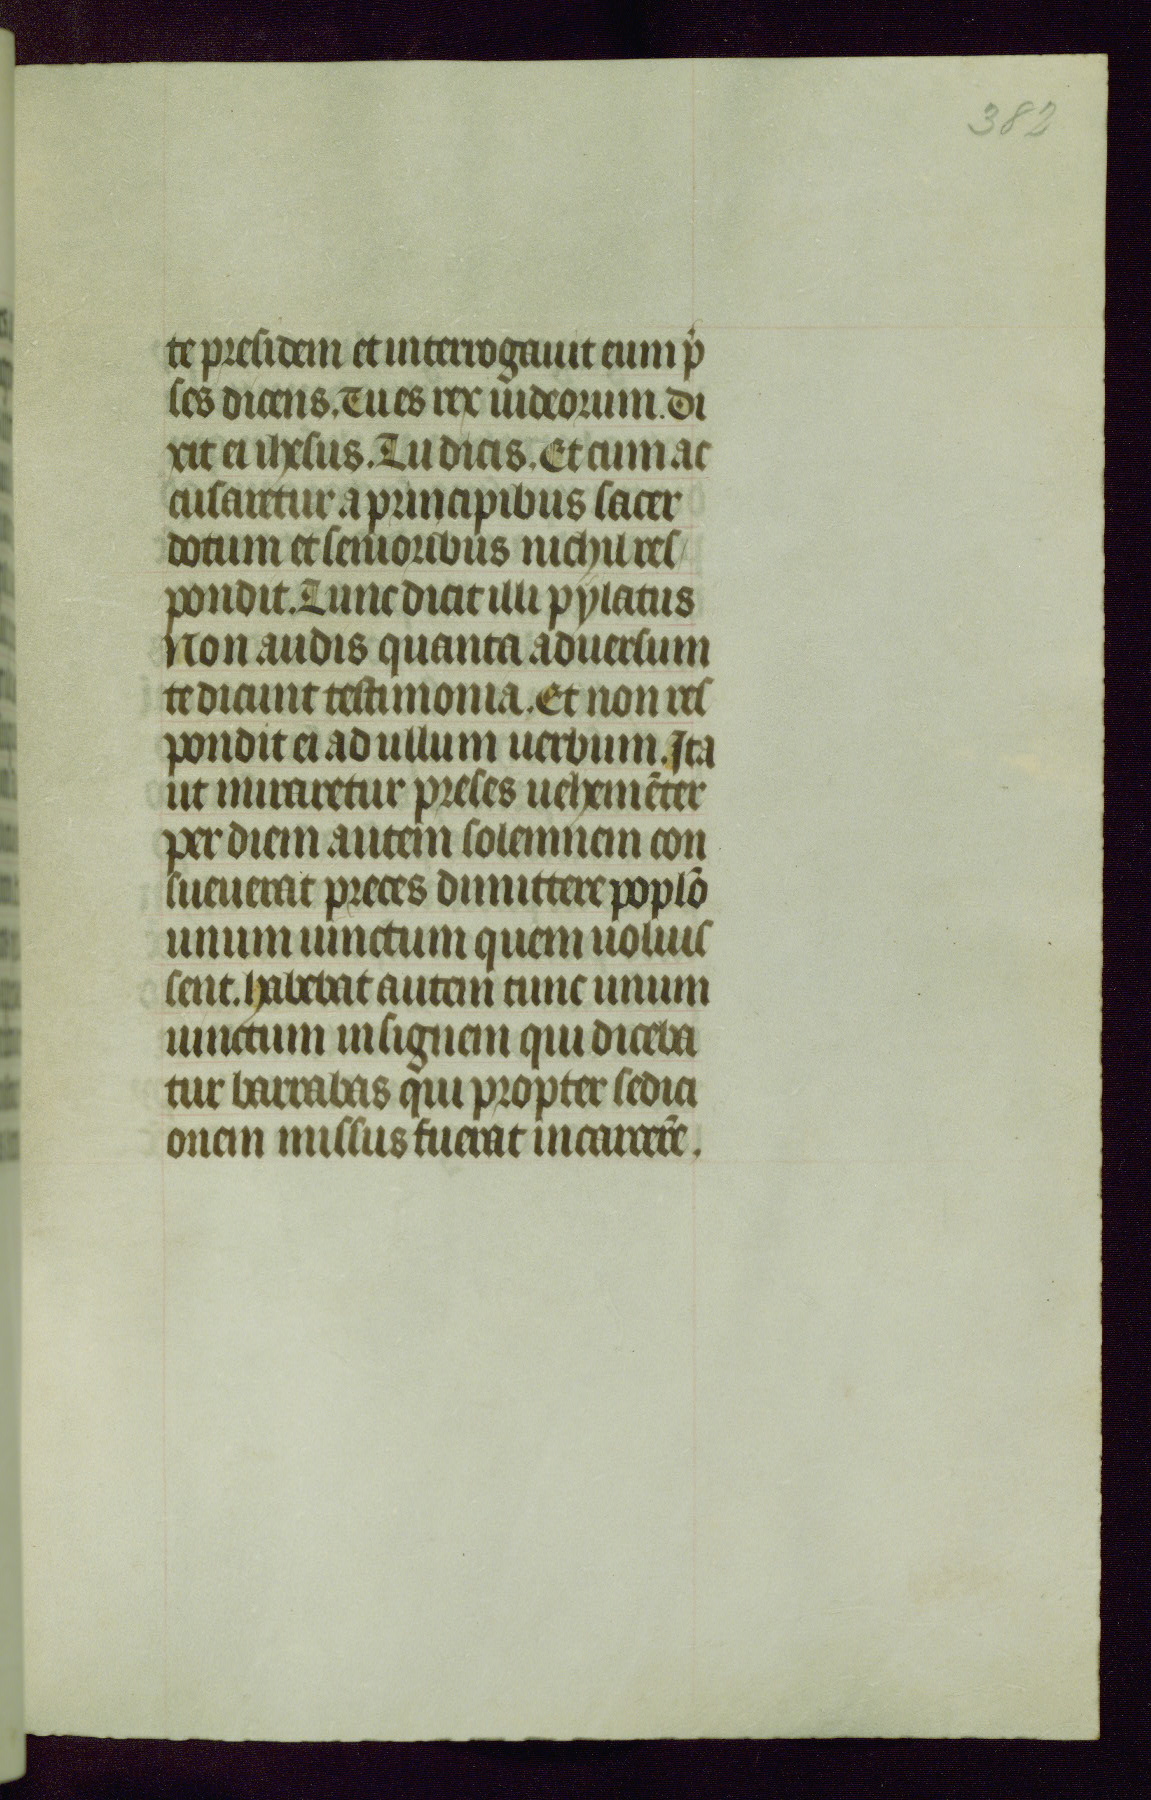 382
te presidem et interrogauit eum p̄
ses dicens. Tu es rex iudeorum. Di
xit ei ihesus. Tu dicis. Et cum ac
cusaretur a principibus sacer
dotum et senioribus nichil res/
pondit. Tunc dicit illi pylatus
Non audis quanta aduersum
te dicunt testimonia. Et non res
pondit ei ad ullum uerbum. Ita
ut miraretur preses uehemēter
per diem autem solemnem con
sueuerat preces dimittere poplō
unum uinctum quem uoluis
sent. habebat autem tunc unum
uinctum insignem qui diceba
tur barrabas qui propter sedici
onem missus fuerat in carcere.